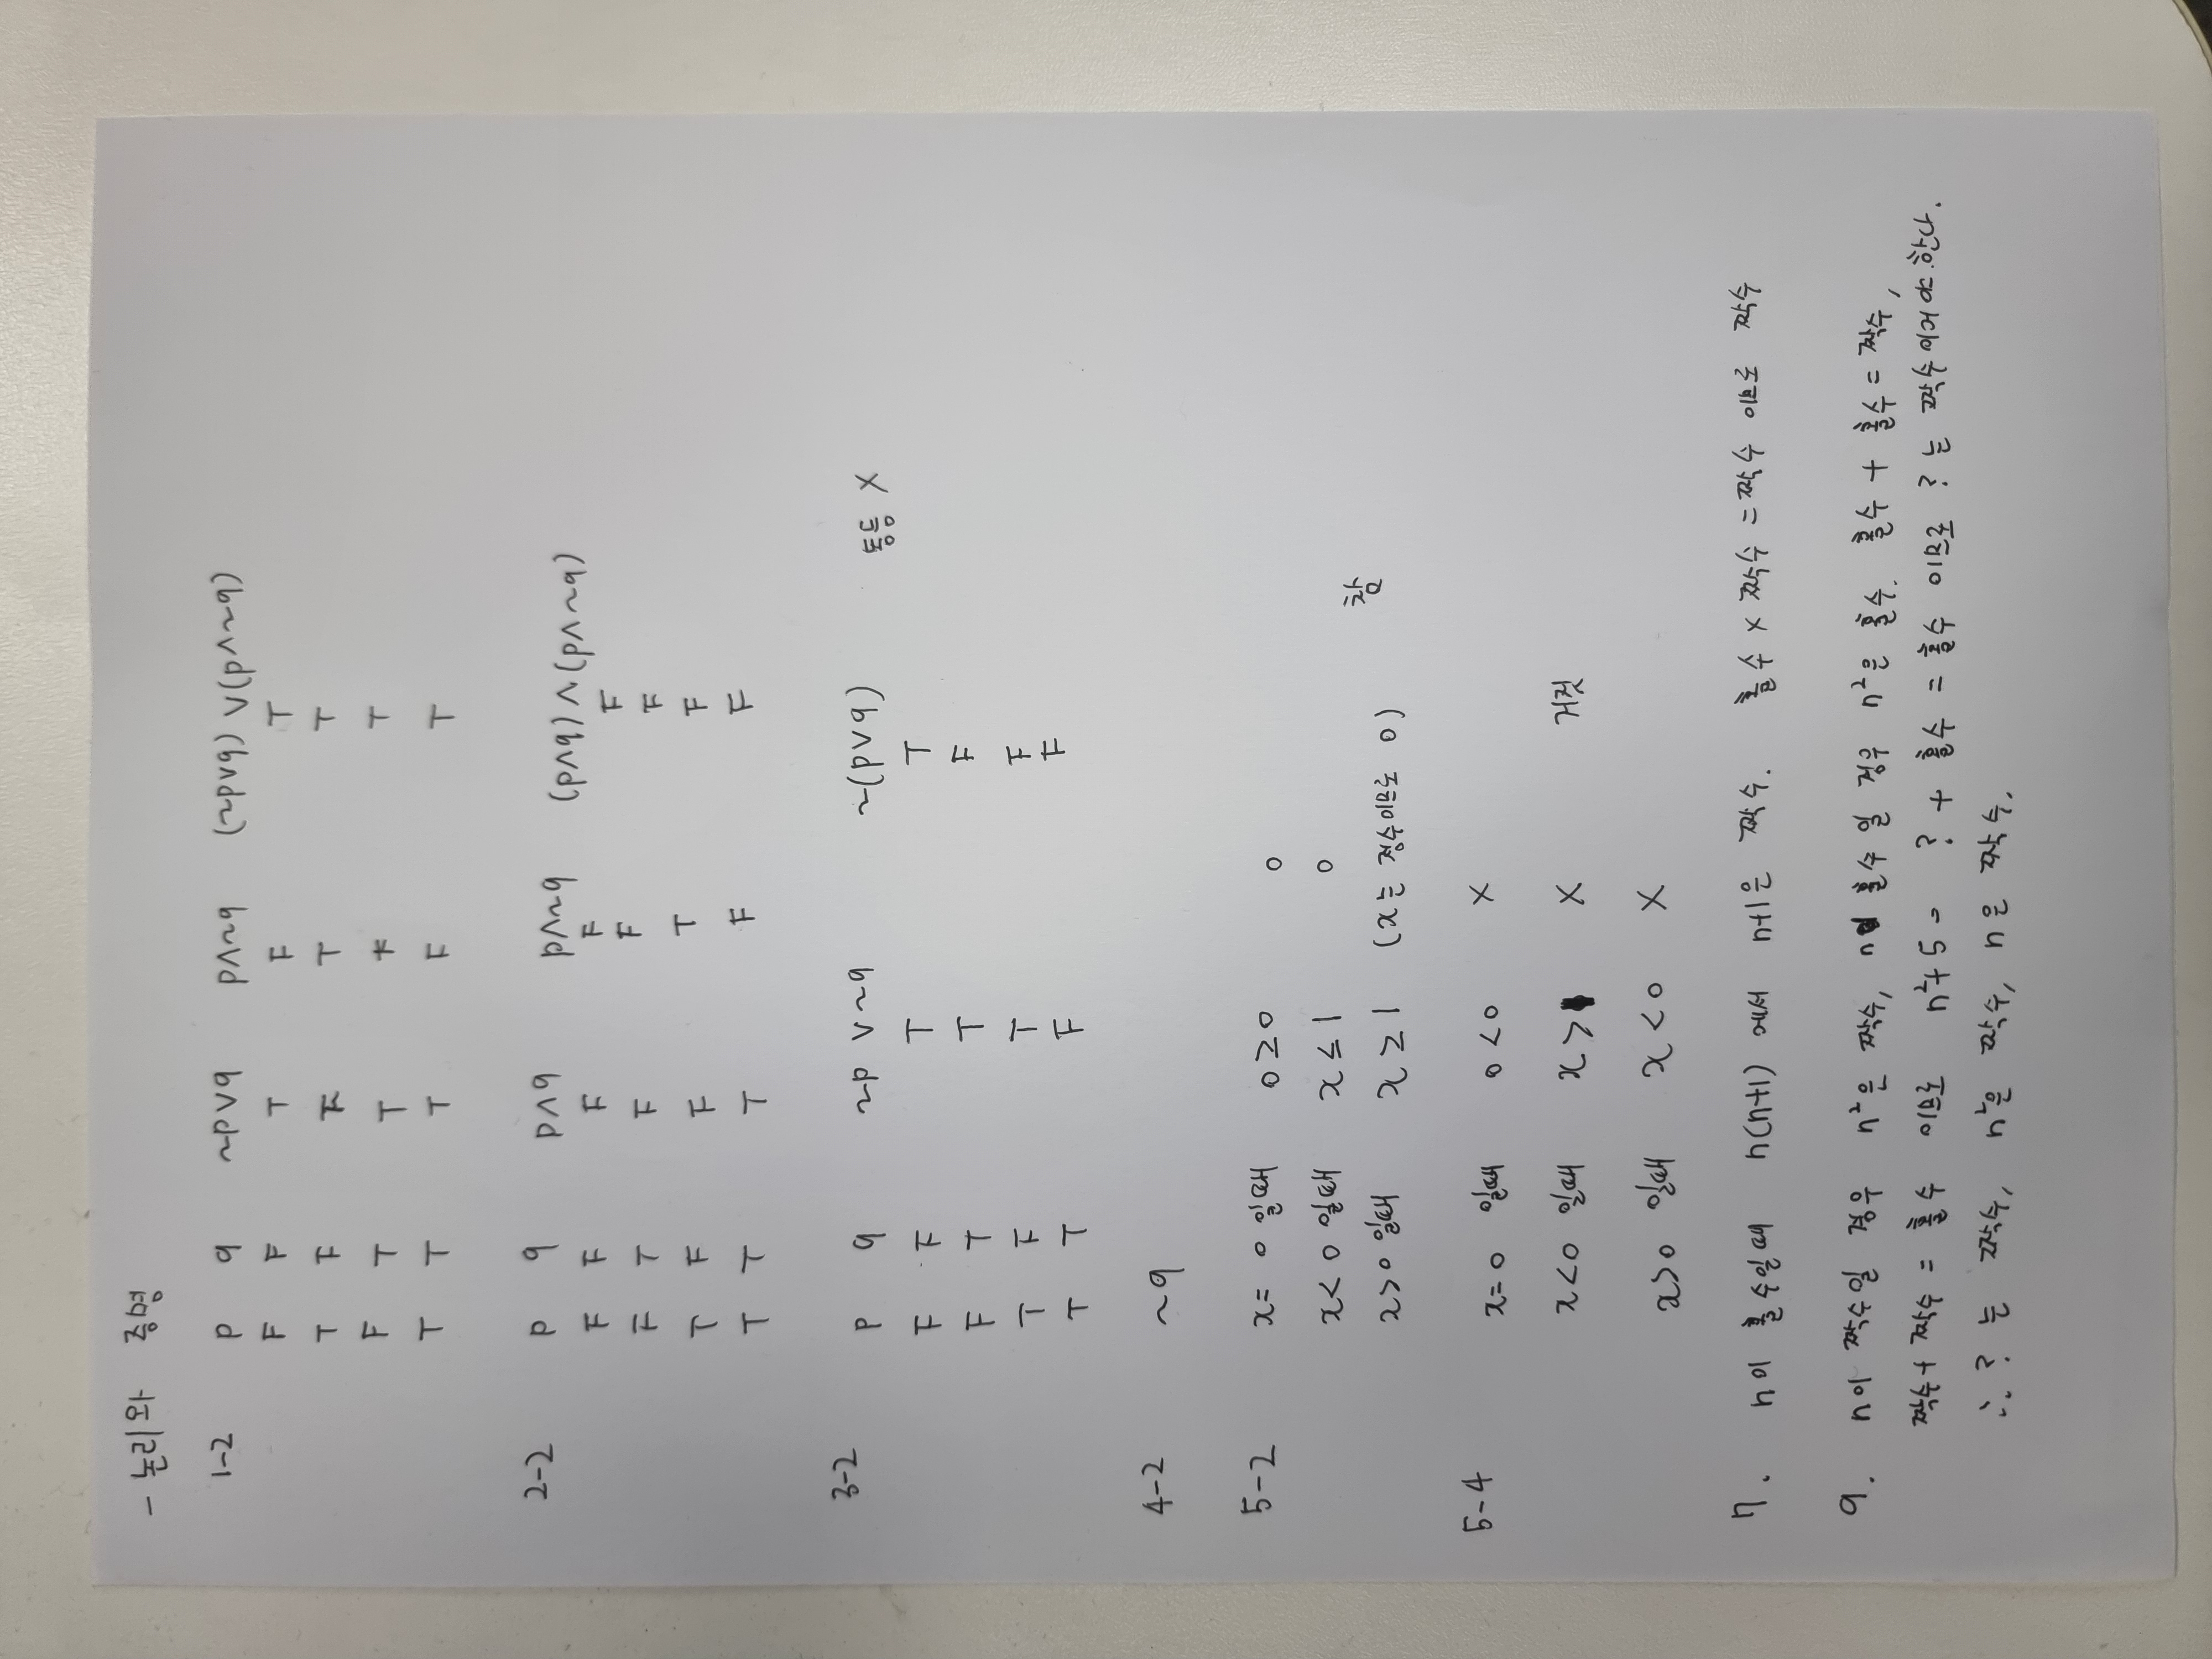 - 논리와 증명
1-2 p q ~p∨q p∧~q (~p∨q) ∨(p∧~q)
F F T F T
T F F T T
F T T F T
T T T F T
2-2 p q p∧q p∧~q (p∧q) ∧ (p∧~q)
F F F F F
F T F F F
T F F T F
T T T F F
3-2 p q ~p ∨ ~q ~(p∨q) 동등 X
F F T T
F T T F
T F T F
T T F F
4-2 ~q
5-2 x= 0 일때 0≥0 o
x<0 일때 x≤1 o
x>0 일때 x≥1 (x는 정수이므로 o) 참
5-4 x=0 일때 0<0 X
x<0 일때 x>1 X 거짓
x>0 일때 x<0 X
7. n이 홀수일때 n(n+1) 에서 n+1은 짝수. 홀수 x 짝수 = 짝수 이므로 짝수
9. n이 짝수일 경우 n²은 짝수, n이 홀수 일 경우 n²은 홀수. 홀수 + 홀수 = 짝수,
짝수 + 짝수 = 홀수 이므로 n²+5 = ? + 홀수 = 홀수 이므로 ? 는 짝수이어야 한다.
∴ ? 는 짝수, n²은 짝수, n은 짝수.